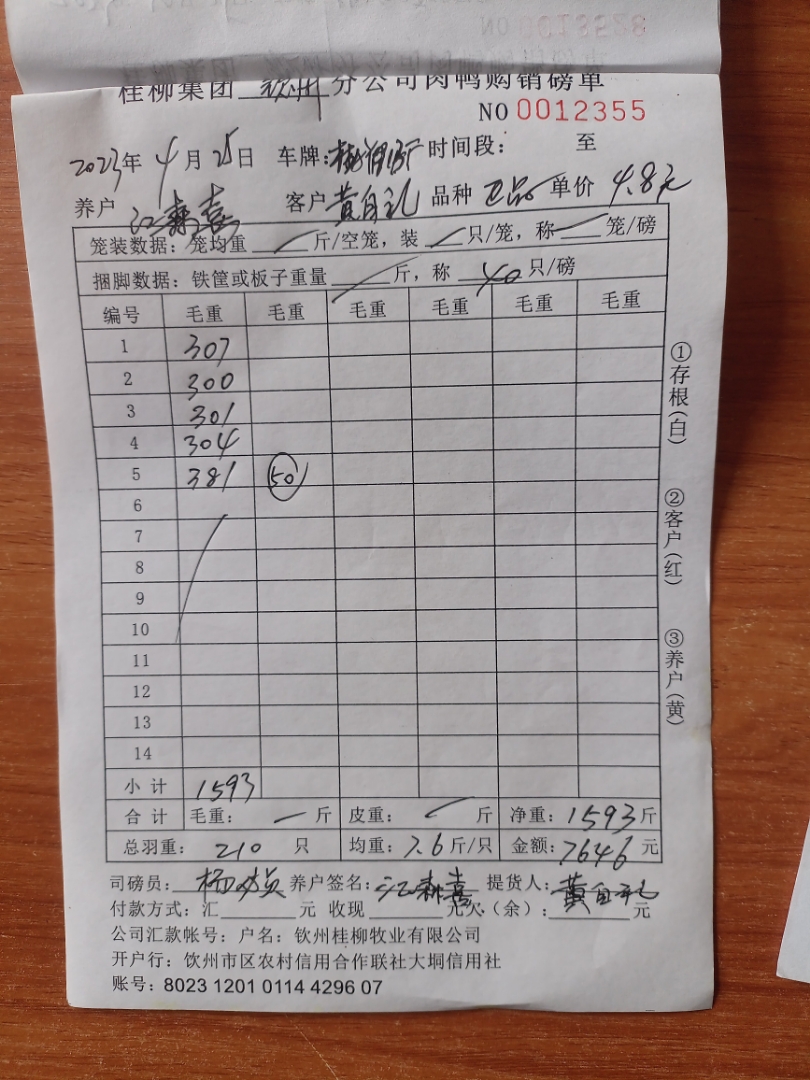 桂柳集团 钦州 分公司肉鸭购销磅单
NO 0012355
2023年 4月 25日 车牌： 时间段： 至
养户 江森喜 客户 黄自礼 品种 正品 单价 4.8元
笼装数据：笼均重 斤/空笼，装 只/笼，称 笼/磅
捆脚数据：铁筐或板子重量 斤，称 40 只/磅
编号 毛重 毛重 毛重 毛重 毛重 毛重
1 307
2 300
3 301
4 304
5 381 50
6
7
8
9
10
11
12
13
14
小计 1593
合计 毛重： 斤 皮重： 斤 净重：1593斤
总羽重：210 只 均重：7.6斤/只 金额：7646元
司磅员： 养户签名：江森喜 提货人：黄自礼
付款方式：汇 元 收现 元欠（余）： 元
公司汇款帐号：户名：钦州桂柳牧业有限公司
开户行：钦州市区农村信用合作联社大垌信用社
账号：8023 1201 0114 4296 07
①存根（白）
②客户（红）
③养户（黄）